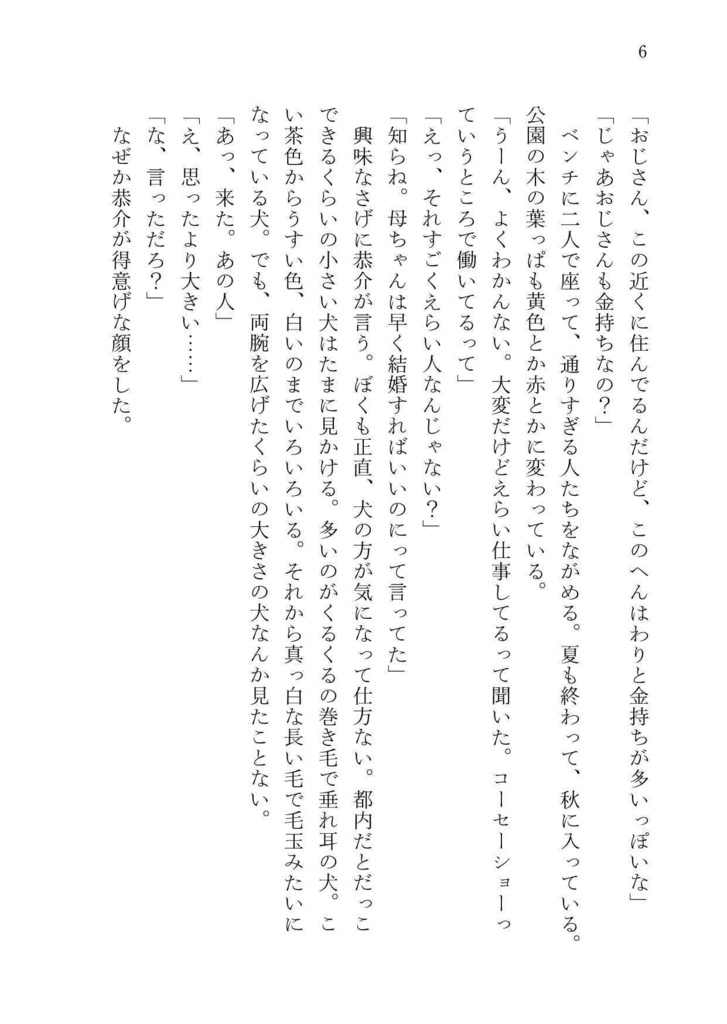 6
「おじさん、この近くに住んでるんだけど、このへんはわりと金持ちが多いっぽいな」
「じゃあおじさんも金持ちなの？」
　ベンチに二人で座って、通りすぎる人たちをながめる。夏も終わって、秋に入っている。
公園の木の葉っぱも黄色とか赤とかに変わっている。
「うーん、よくわかんない。大変だけどえらい仕事してるって聞いた。コーセーショーっ
ていうところで働いてるって」
「えっ、それすごくえらい人なんじゃない？」
「知らね。母ちゃんは早く結婚すればいいのにって言ってた」
　興味なさげに恭介が言う。ぼくも正直、犬の方が気になって仕方ない。都内だとだっこ
できるくらいの小さい犬はたまに見かける。多いのがくるくるの巻き毛で垂れ耳の犬。こ
い茶色からうすい色、白いのまでいろいろいる。それから真っ白な長い毛で毛玉みたいに
なっている犬。でも、両腕を広げたくらいの大きさの犬なんか見たことない。
「あっ、来た。あの人」
「え、思ったより大きい……」
「な、言っただろ？」
　なぜか恭介が得意げな顔をした。